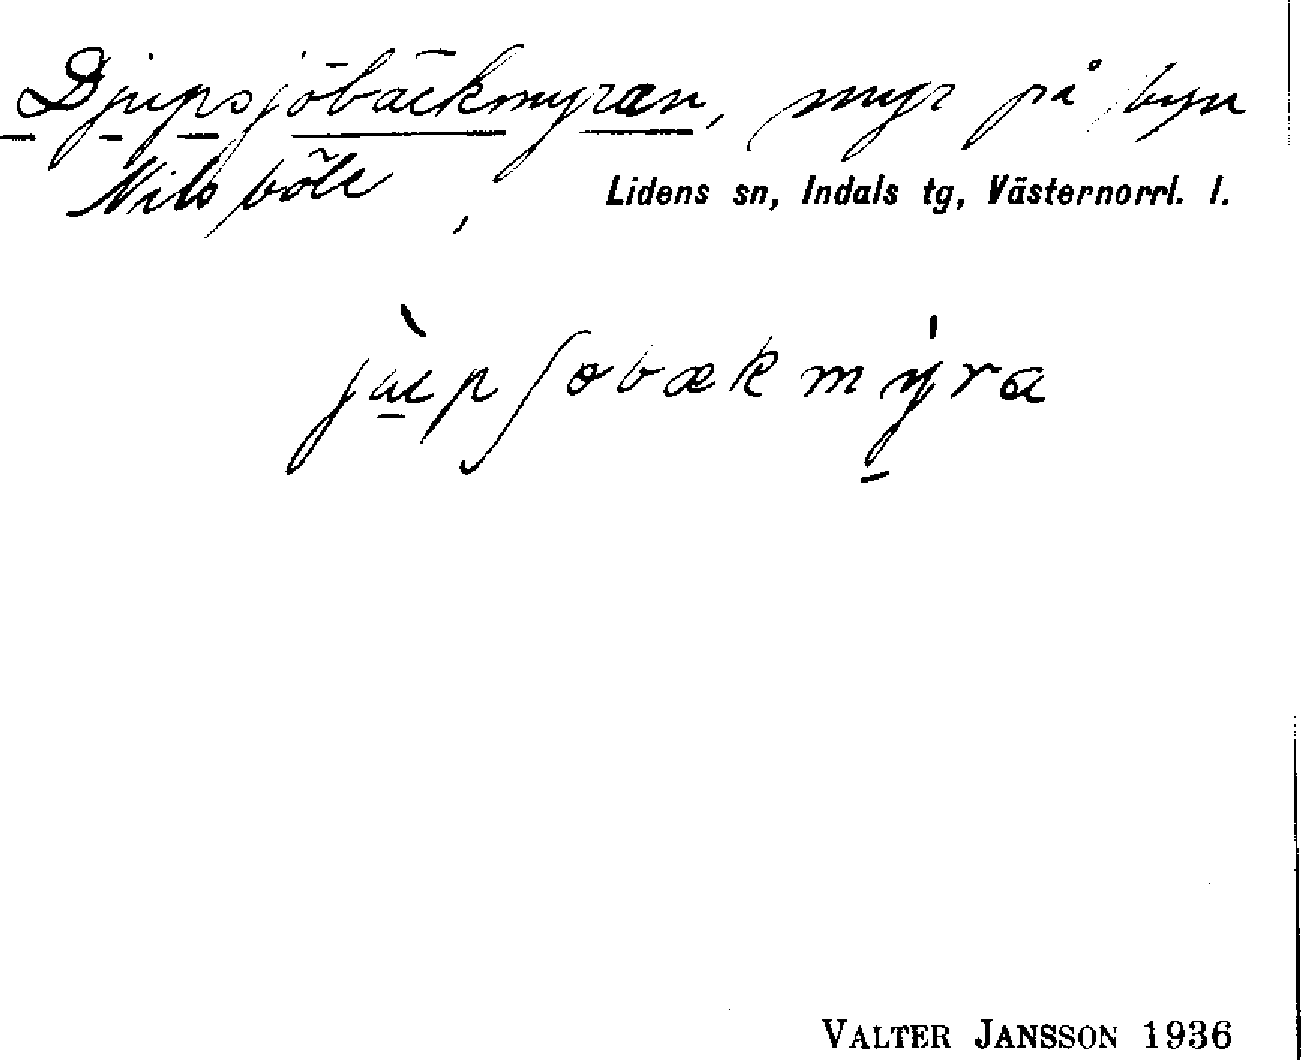 Djupsjöbäckmyran, myr på byn
Nilsböle, Lidens sn, Indals tg, Västernorrl. l.
jùpʃobækmýra
VALTER JANSSON 1936